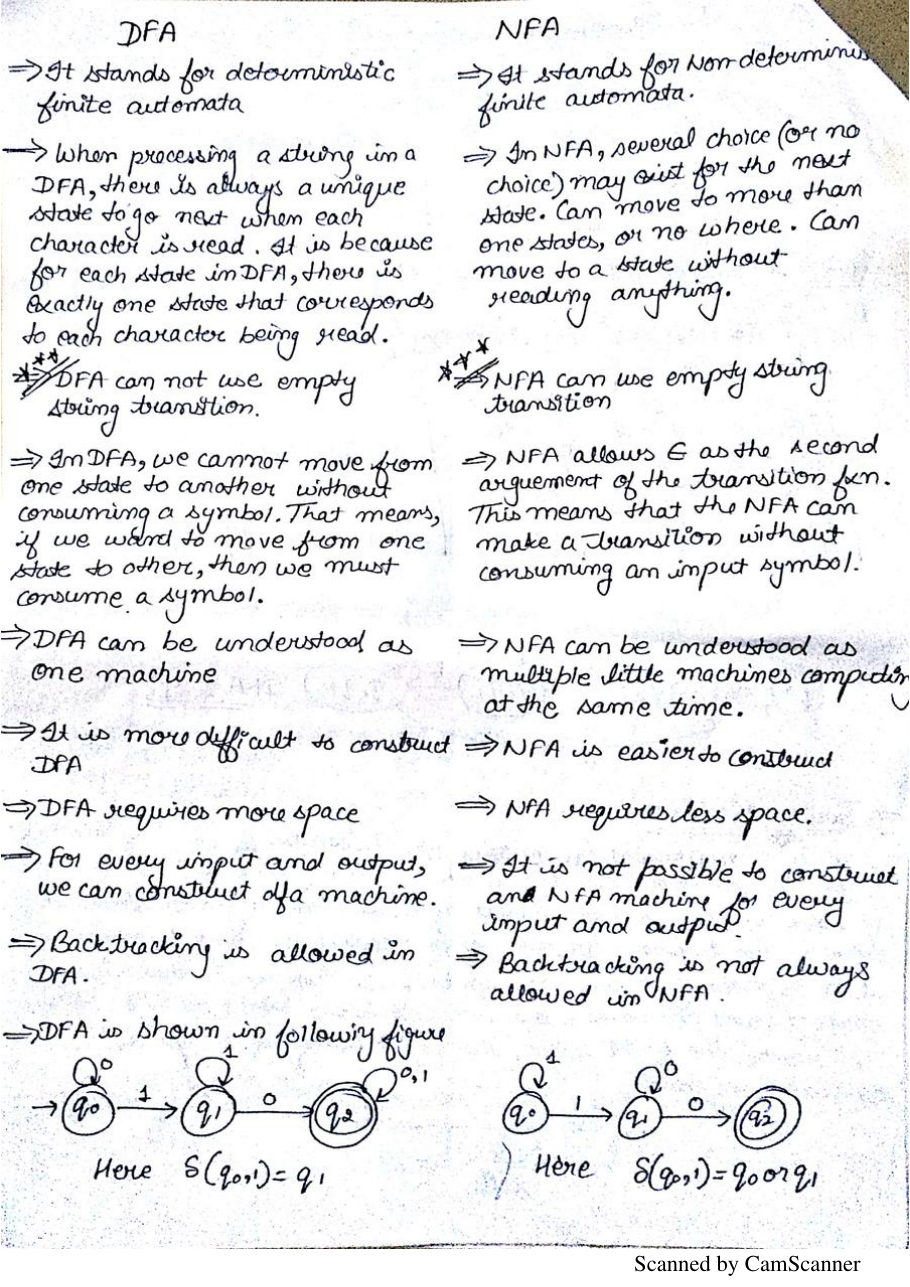 DFA
⇒ It stands for deterministic
finite automata
→ When processing a string in a
DFA, there is always a unique
state to go next when each
character is read. It is because
for each state in DFA, there is
exactly one state that corresponds
to each character being read.
*** ⇒ DFA can not use empty
string transition.
⇒ In DFA, we cannot move from
one state to another without
consuming a symbol. That means,
if we want to move from one
state to other, then we must
consume a symbol.
⇒ DFA can be understood as
one machine
⇒ It is more difficult to construct
DFA
⇒ DFA requires more space
⇒ For every input and output,
we can construct dfa machine.
⇒ Backtracking is allowed in
DFA.
⇒ DFA is shown in following figure
0 1 0,1
q0 1 q1 0 q2
Here δ(q0,1) = q1
NFA
⇒ It stands for Non-determinis
finite automata.
⇒ In NFA, several choice (or no
choice) may exist for the next
state. Can move to more than
one states, or no where. Can
move to a state without
reading anything.
*** ⇒ NFA can use empty string
transition
⇒ NFA allows ∈ as the second
arguement of the transition fxn.
This means that the NFA can
make a transition without
consuming an input symbol.
⇒ NFA can be understood as
multiple little machines computing
at the same time.
⇒ NFA is easier to construct
⇒ NFA requires less space.
⇒ It is not possible to construct
and NFA machine for every
input and output.
⇒ Backtracking is not always
allowed in NFA.
1 0
q0 1 q1 0 q2
Here δ(q0,1) = q0 or q1
Scanned by CamScanner